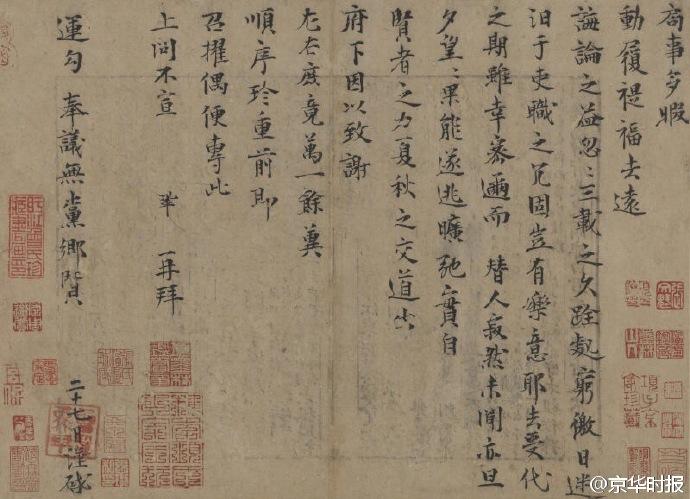 局事多暇
動履禔福去遠
誨論之益忽々三載之久跧處窮徼日迷
汩于吏職之冗固豈有樂意耶去受代
之期雖幸密邇而替人寂然未聞亦旦
夕望々果能遂逃曠弛實自
賢者之力夏秋之交道出
府下因以致謝
左右庶竟萬一餘冀
順序珍重前即
召擢偶便專此
上問不宣 鞏 再拜
運勾 奉議無黨鄉賢
二十七日謹啟
@京华时报